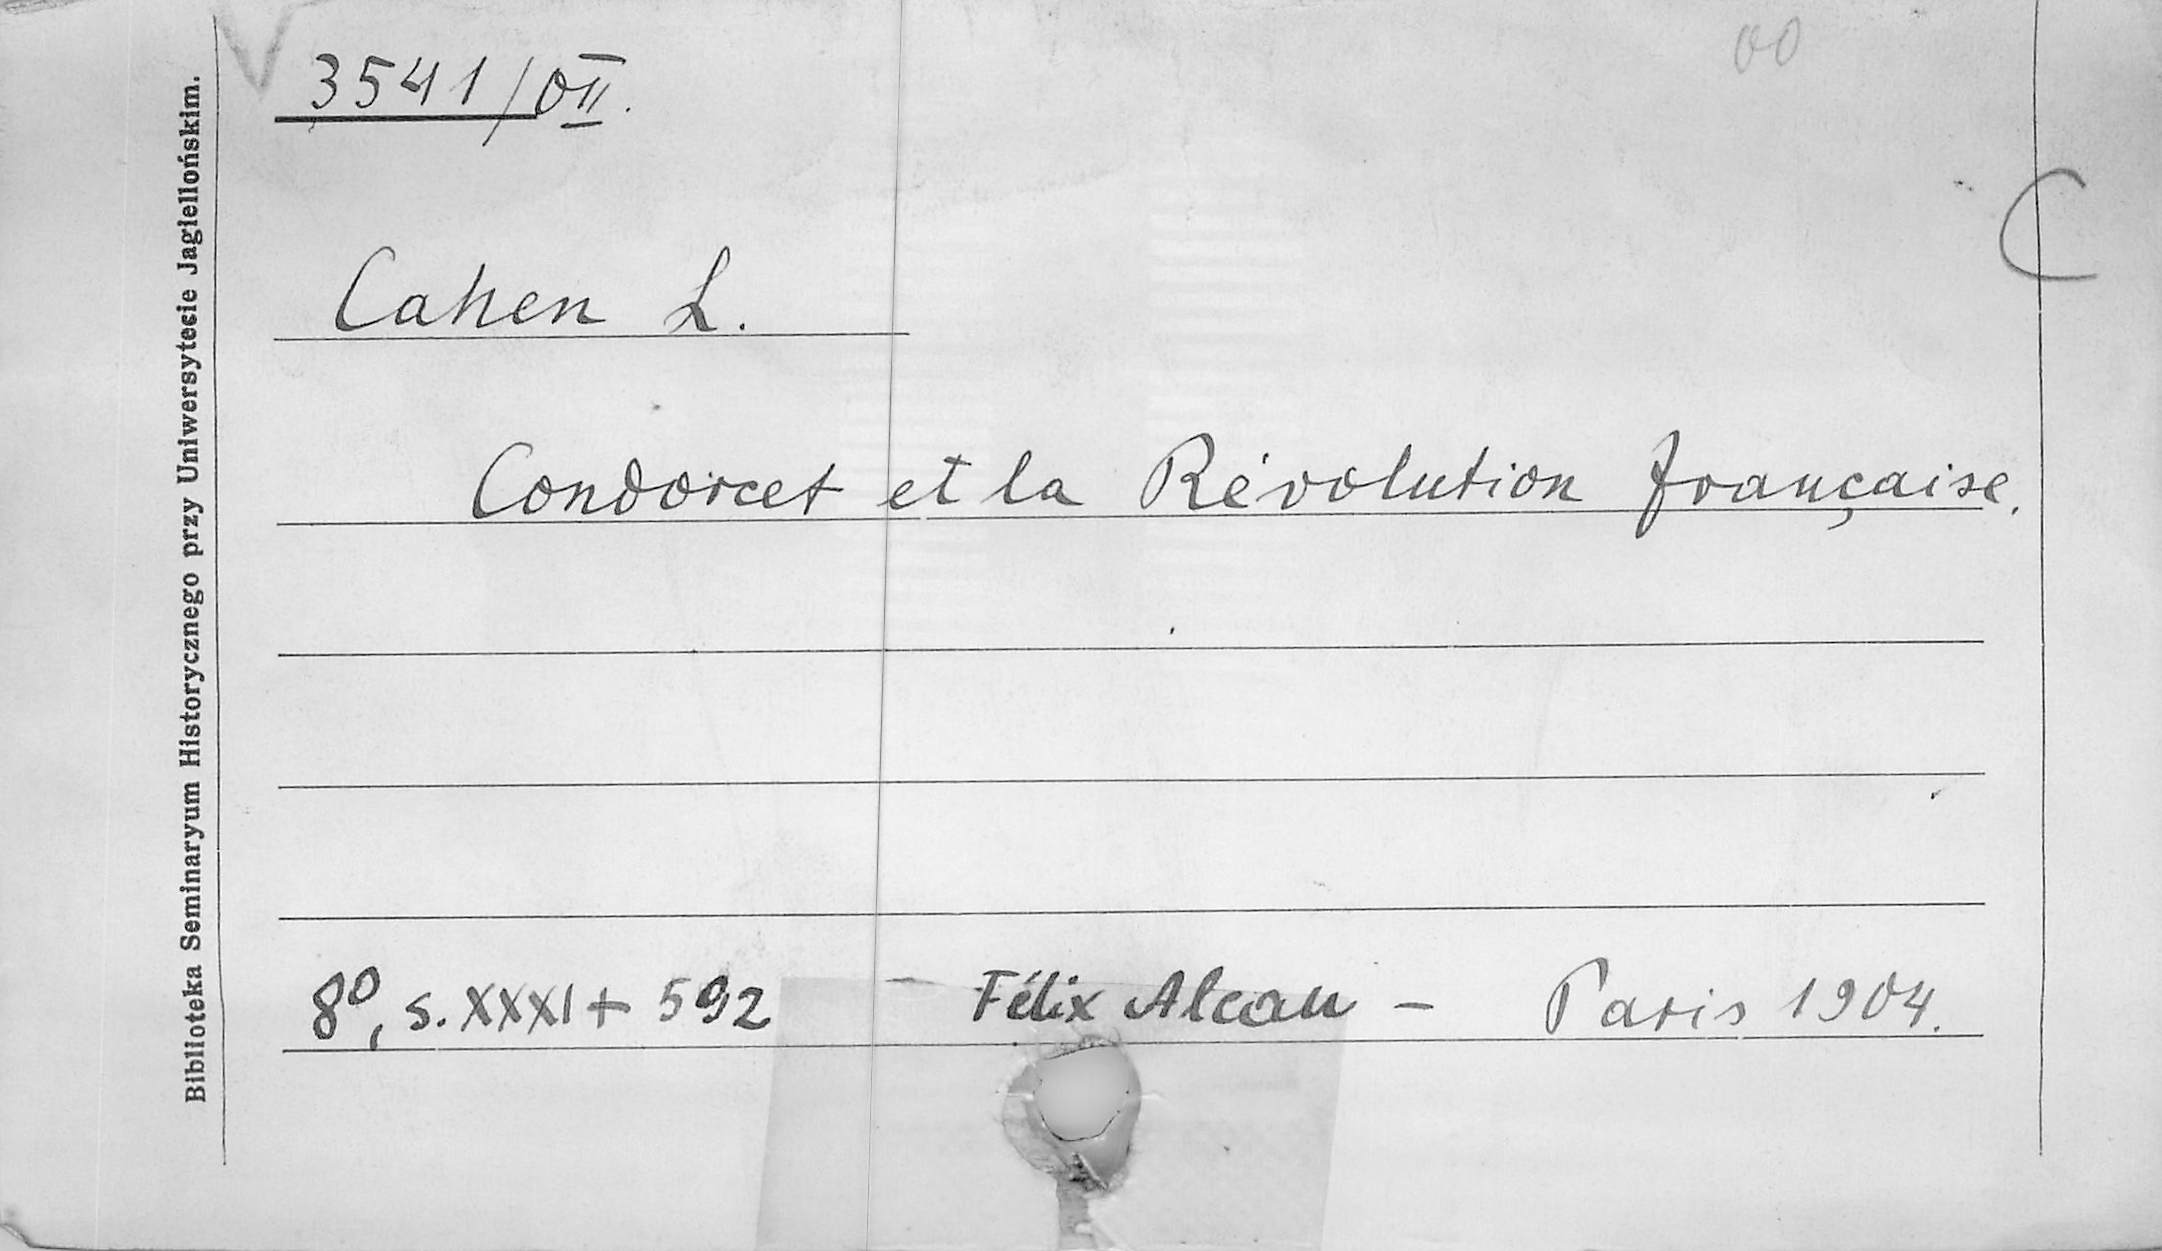 V 3541/OII. 00
C
Cahen L.
Condorcet et la Révolution française.
8⁰, s. XXXI + 592 – Félix Alcan – Paris 1904.
Biblioteka Seminaryum Historycznego przy Uniwersytecie Jagiellońskim.